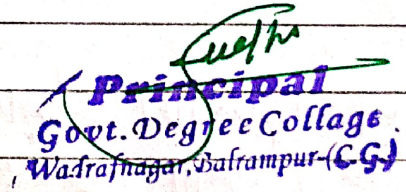 Principal
Govt. Degree Collage
Wadrafnagar, Balrampur-(C.G.)